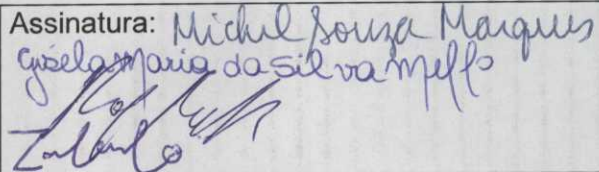 Assinatura: Michel Souza Marques
Gisela Maria da Silva Mello